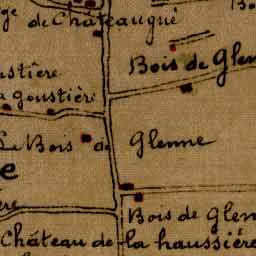 ge
de Châteaugué
Bo
Bois de Glen
ustière
a goustière
Le Bois de Glenne
e
ère
Bois de Glen
Château de la haussière